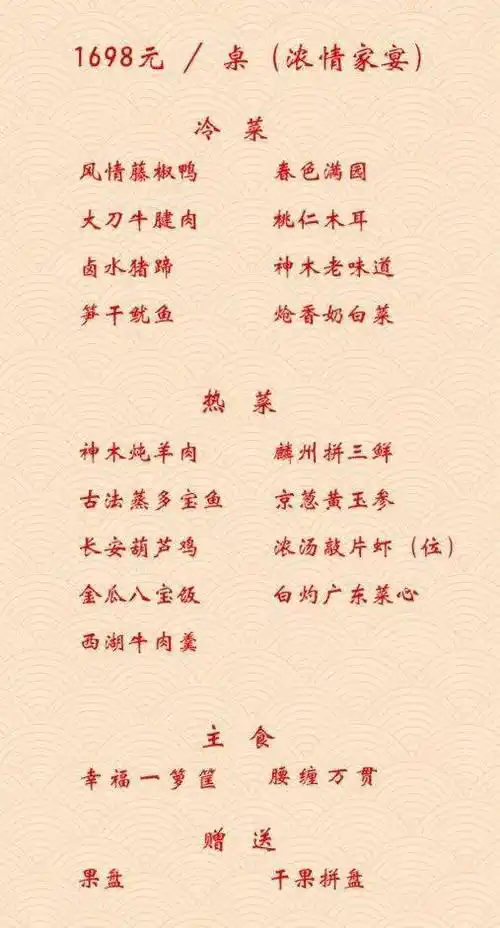 1698元 / 桌（浓情家宴）
冷 菜
风情藤椒鸭 春色满园
大刀牛腱肉 桃仁木耳
卤水猪蹄 神木老味道
笋干鱿鱼 炝香奶白菜
热 菜
神木炖羊肉 麟州拼三鲜
古法蒸多宝鱼 京葱黄玉参
长安葫芦鸡 浓汤敲片虾（位）
金瓜八宝饭 白灼广东菜心
西湖牛肉羹
主 食
幸福一箩筐 腰缠万贯
赠 送
果盘 干果拼盘